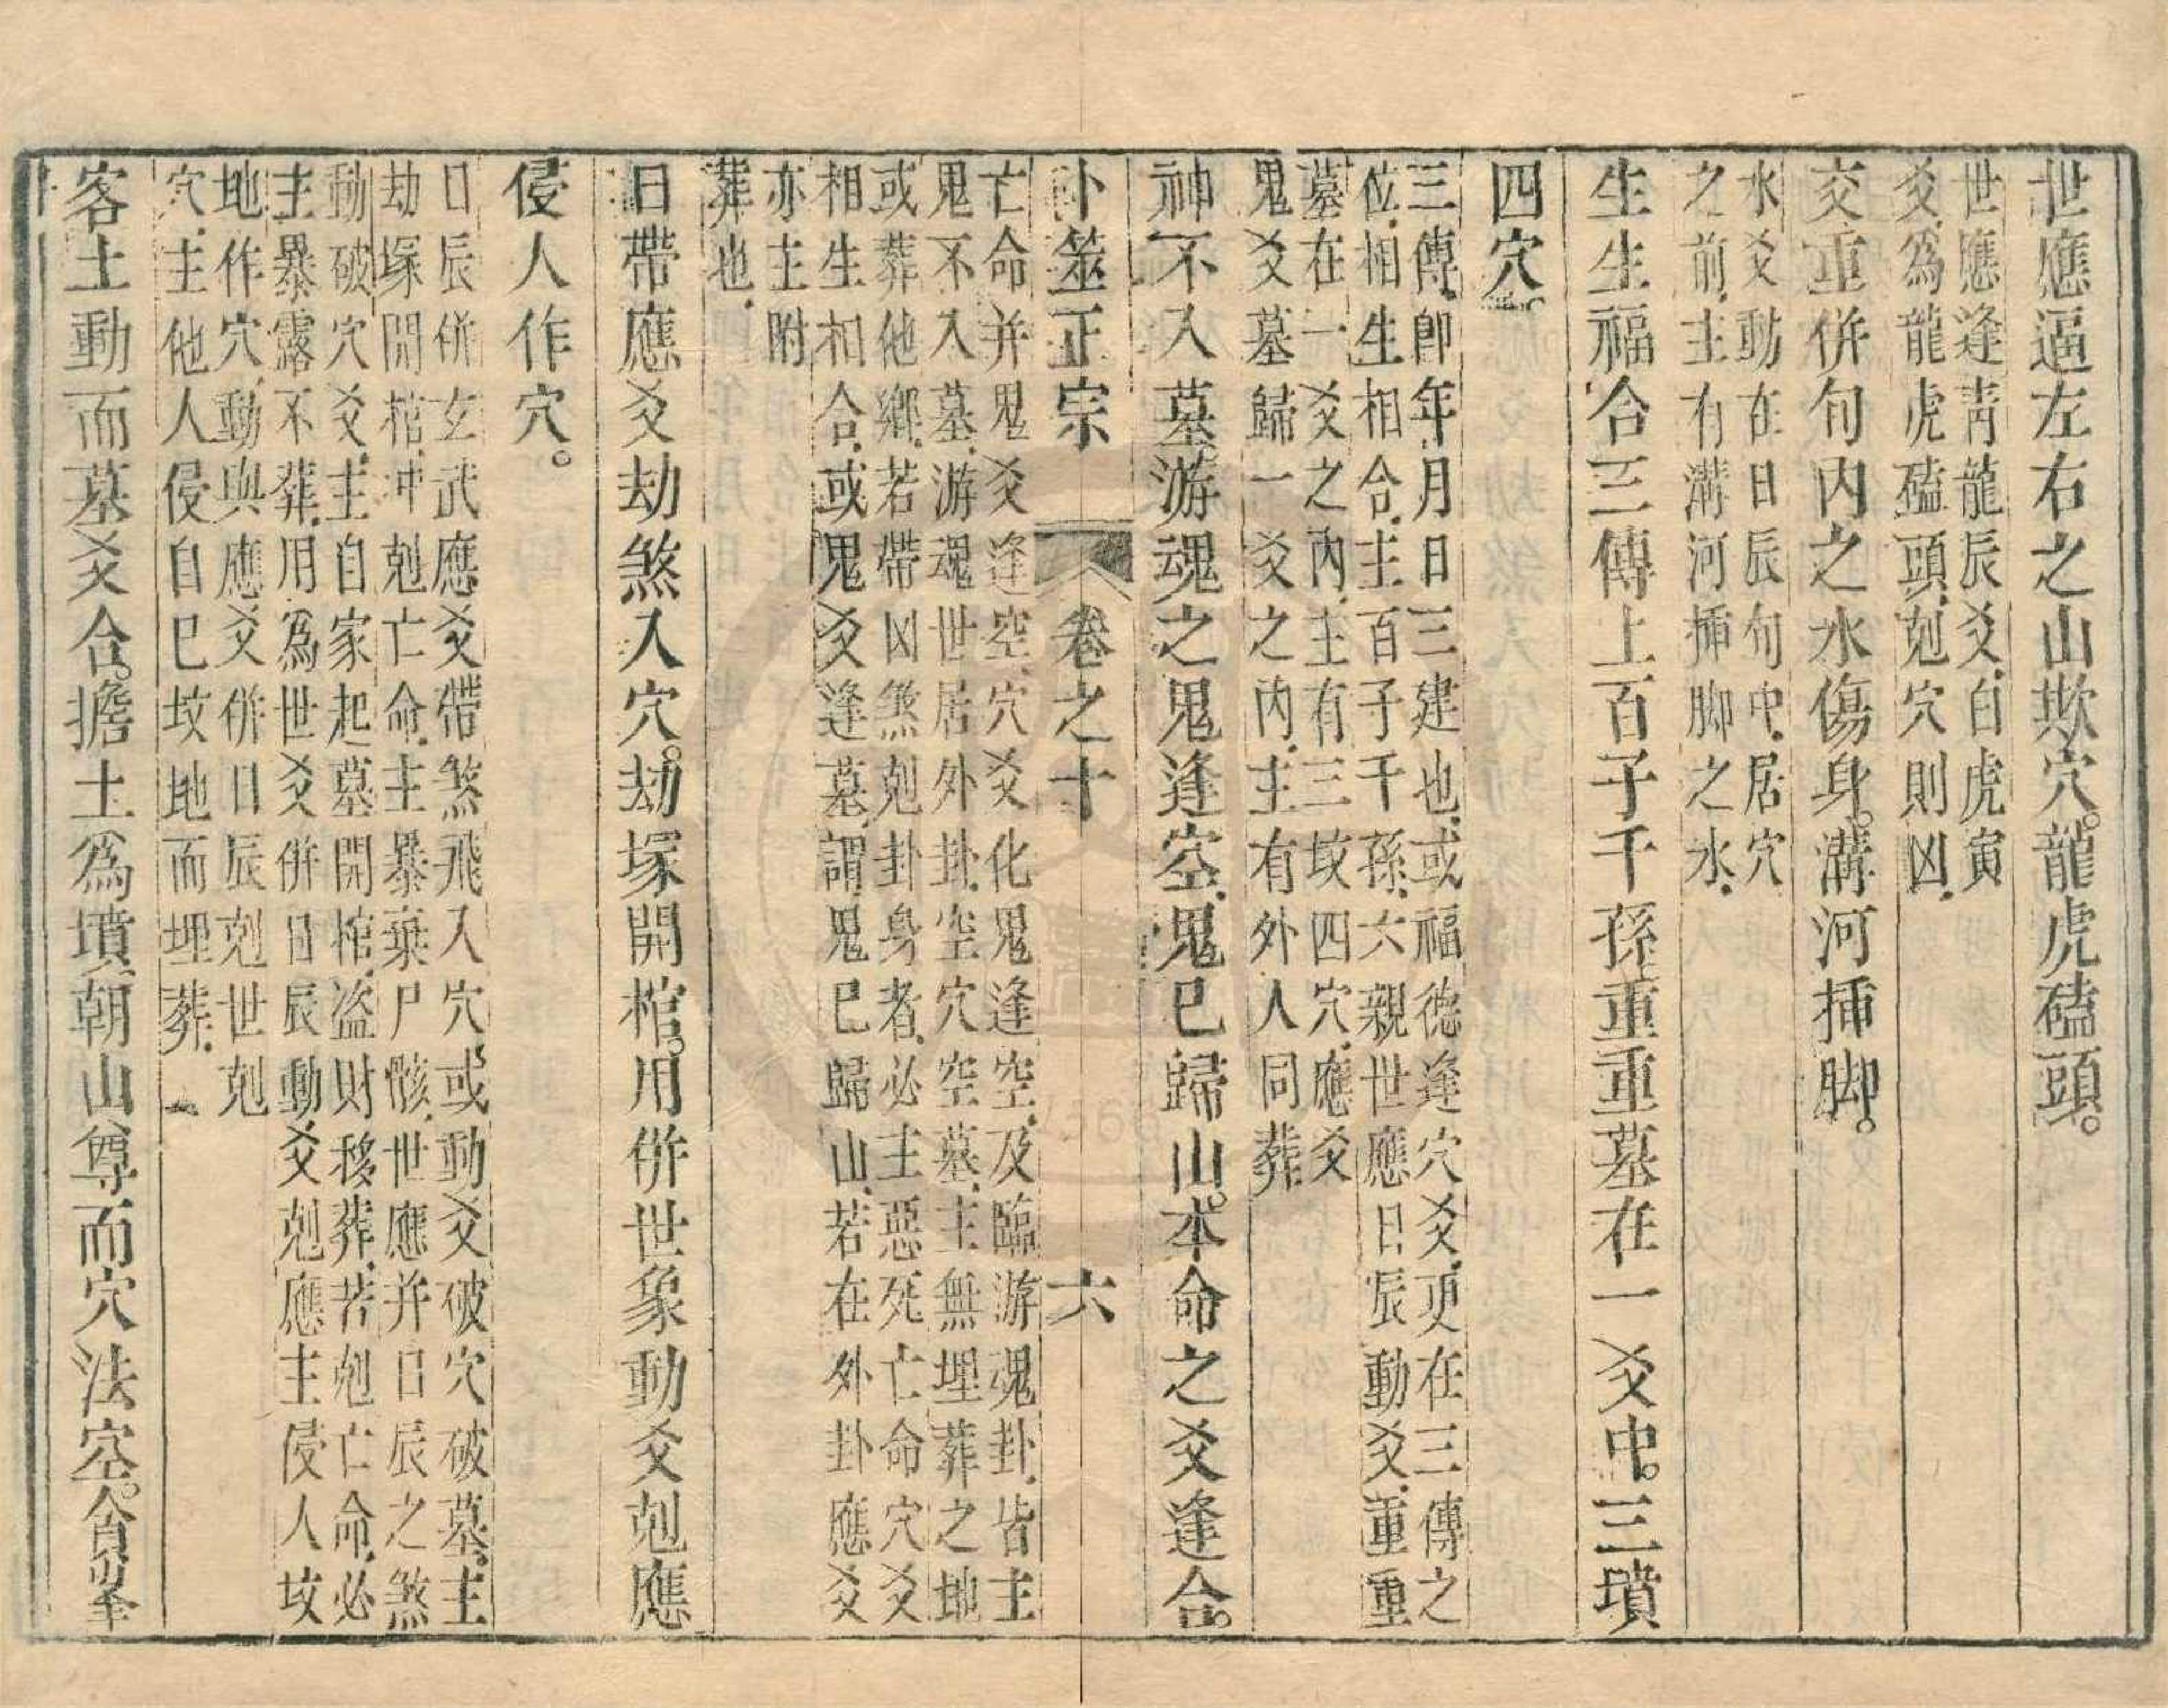 世應逼左右之山欺穴。龍虎磕頭。
世應逢靑龍辰爻、白虎寅
爻、爲龍虎磕頭、尅穴則凶、
交重併句內之水傷身。溝河揷脚。
水爻動在日辰句中、居穴
之前、主有溝河揷脚之水、
生生福合三傳上百子千孫重重墓在一爻中。三墳
四穴。
三傳、卽年月日三建也、或福德逢穴爻、更在三傳之
位、相生相合、主百子千孫、六親世應日辰動爻、重重
墓在一爻之內、主有三坟四穴、應爻
鬼爻墓歸一爻之內、主有外人同葬
神不入墓。游魂之鬼逢空。鬼已歸山。本命之爻逢合。
卜筮正宗 卷之十 六
亡命并鬼爻逢空、穴爻化鬼逢空、及臨游魂卦、皆主
鬼不入墓、游魂世居外卦、空穴空墓、主無埋葬之地
或葬他鄉、若帶凶煞尅卦身者、必主惡死亡命穴爻
相生相合、或鬼爻逢墓、謂鬼已歸山、若在外卦應爻
亦主附
葬也、
日帶應爻劫煞入穴。劫塚開棺。用併世象動爻尅應
侵人作穴。
日辰併玄武應爻帶煞飛入穴、或動爻破穴破墓、主
劫塚開棺、冲尅亡命、主暴棄尸骸、世應并日辰之煞
動破穴爻、主自家起墓開棺、盜財移葬、若尅亡命、必
主暴露不葬、用爲世爻併日辰動爻尅應主侵人坟
地作穴、動與應爻併日辰尅世尅
穴、主他人侵自已坟地而埋葬、
客土動而墓爻合。擔土爲墳。朝山尊而穴法空。貪峯